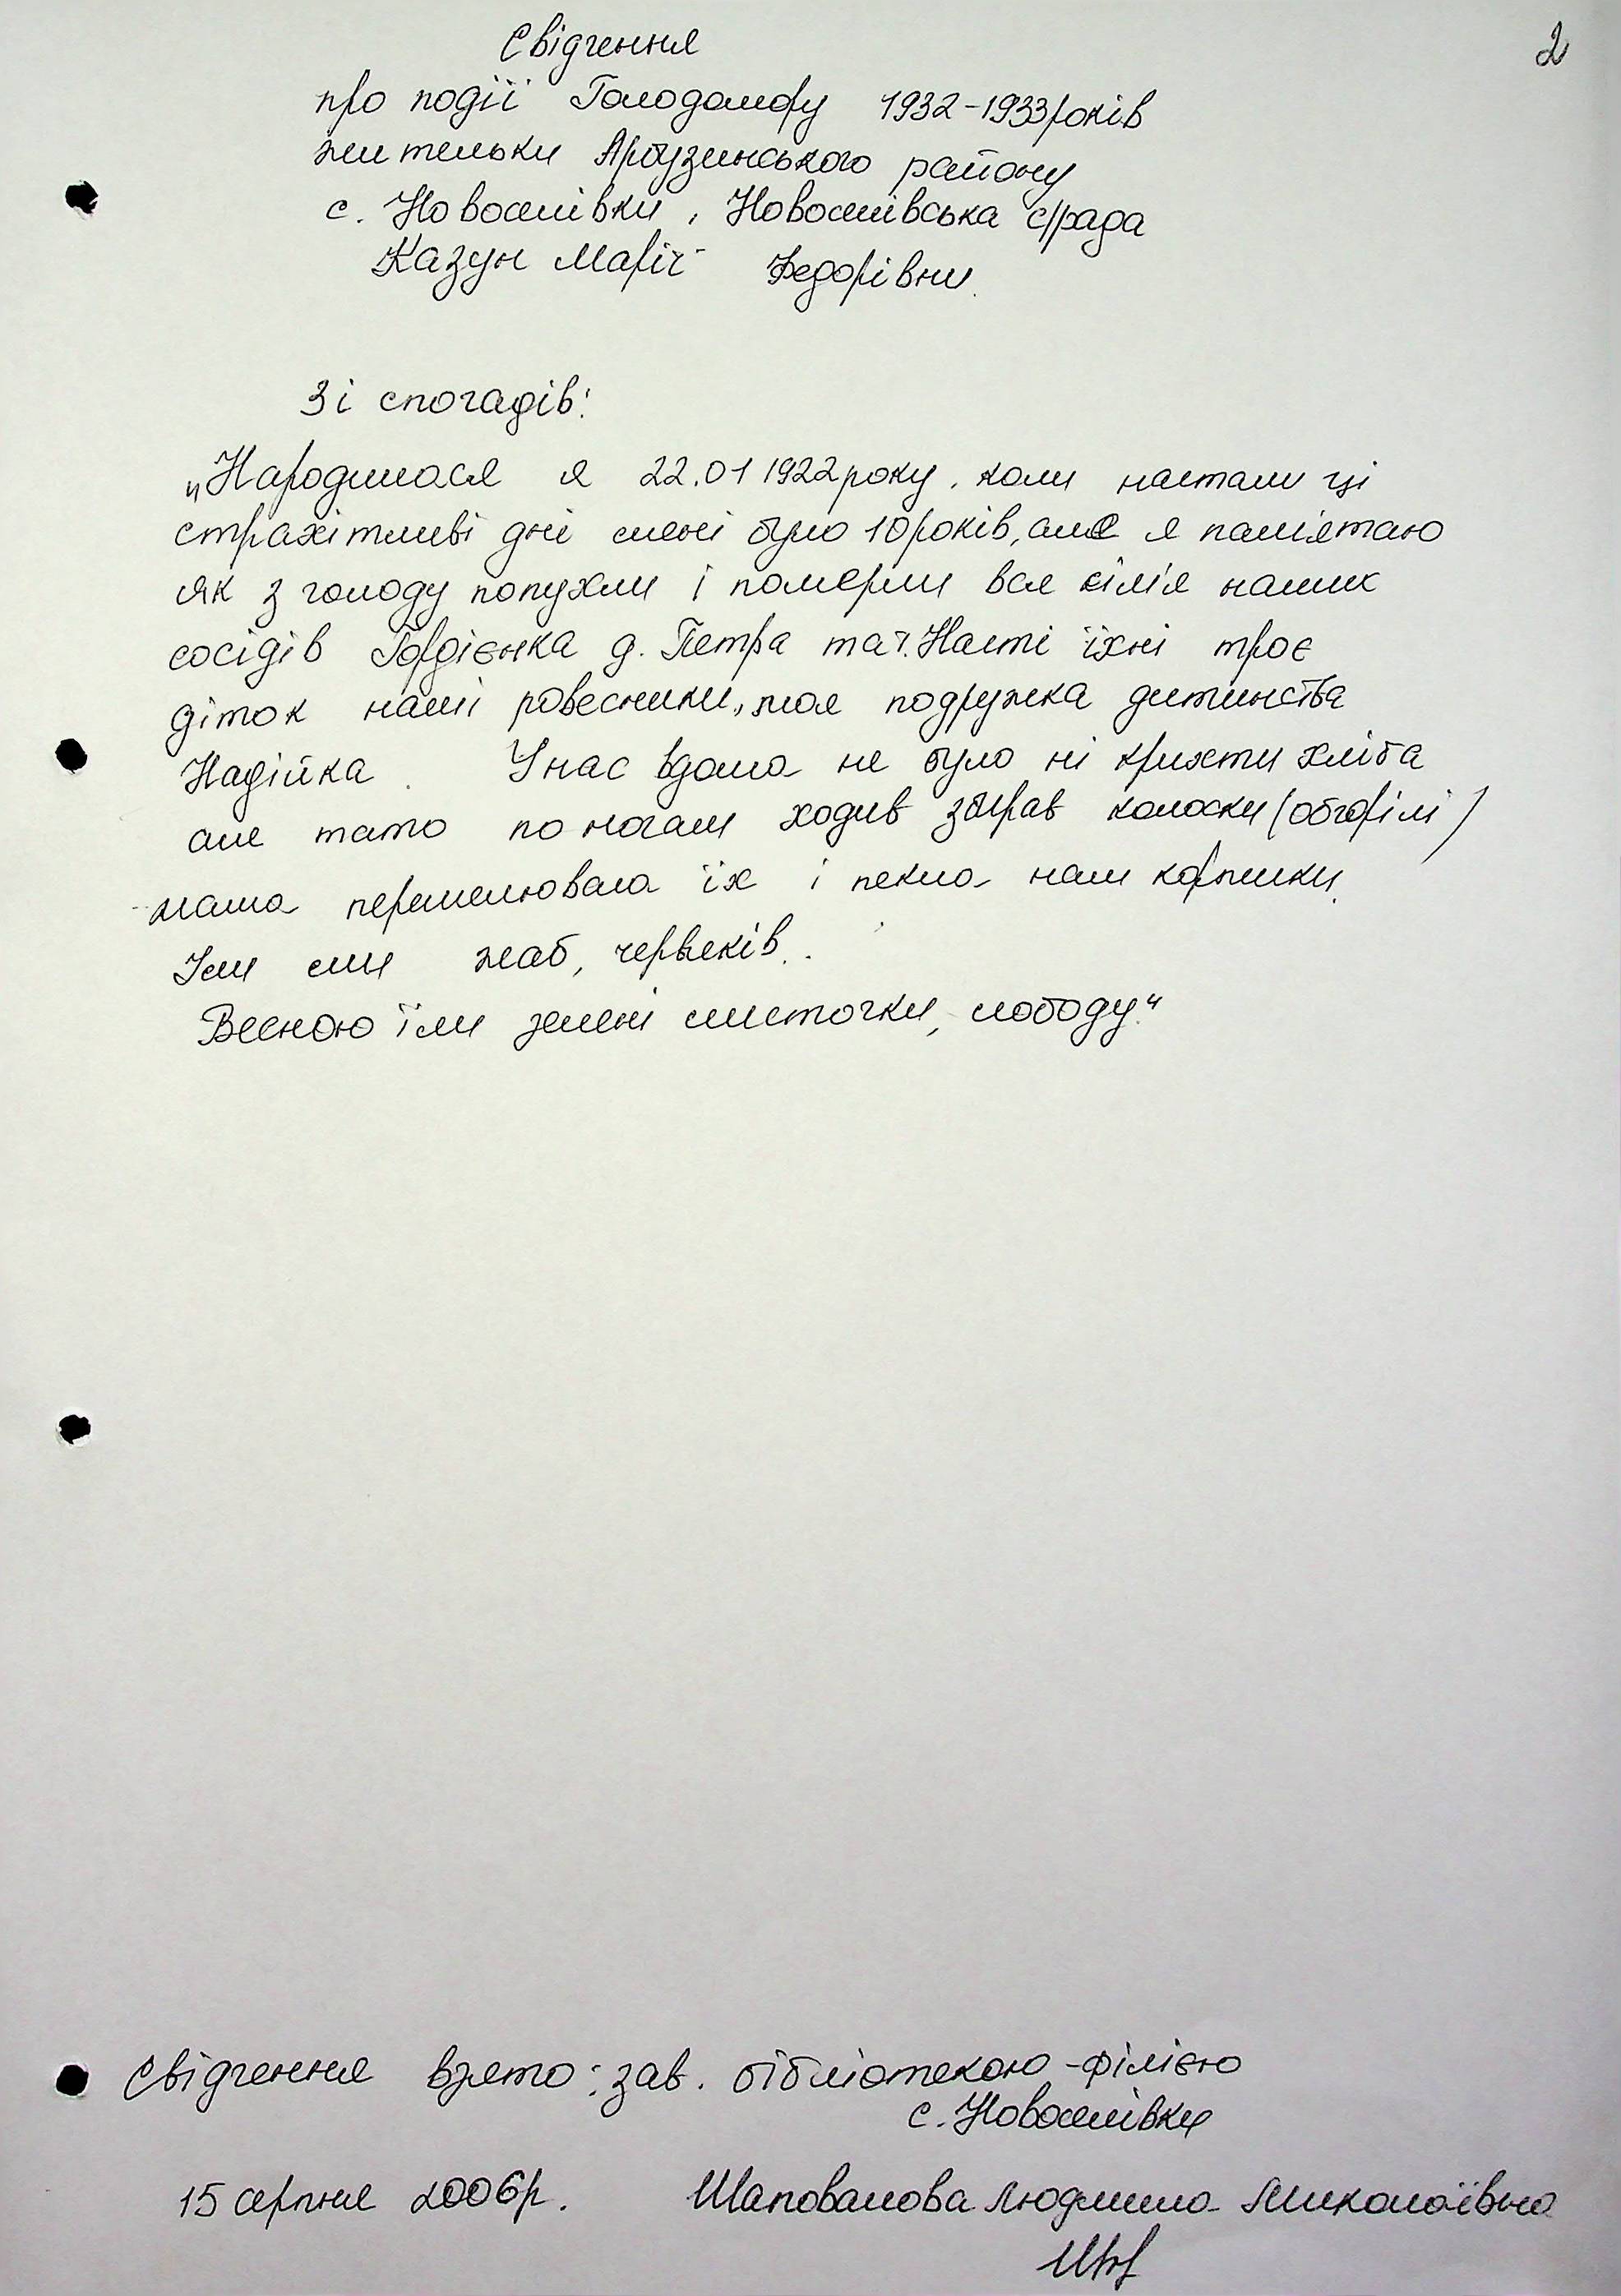 2
Свідчення
про події Голодомору 1932-1933 років
жительки Арбузинського району
с. Новоселівки, Новоселівська с/рада
Казун Марії Федорівни.
Зі спогадів:
„Народилася я 22.01 1922 року, коли настали ці
страхітливі дні мені було 10 років, але я памієтаю
як з голоду попухли і померли вся сімія наших
сосідів Гордієнка д. Петра та т. Насті їхні троє
діток наші ровесники, моя подружка дитинства
Надійка. У нас вдома не було ні крихти хліба
але тато по ночам ходив збирав колоски (обгорілі)
мама перемелювала їх і пекла нам коржики.
Їли ми жаб, червяків..
Весною їли зелені листочки, лободу."
Свідчення взято: зав. бібліотекою-філією
с. Новоселівки
15 серпня 2006р. Шаповалова Людмила Миколаївна